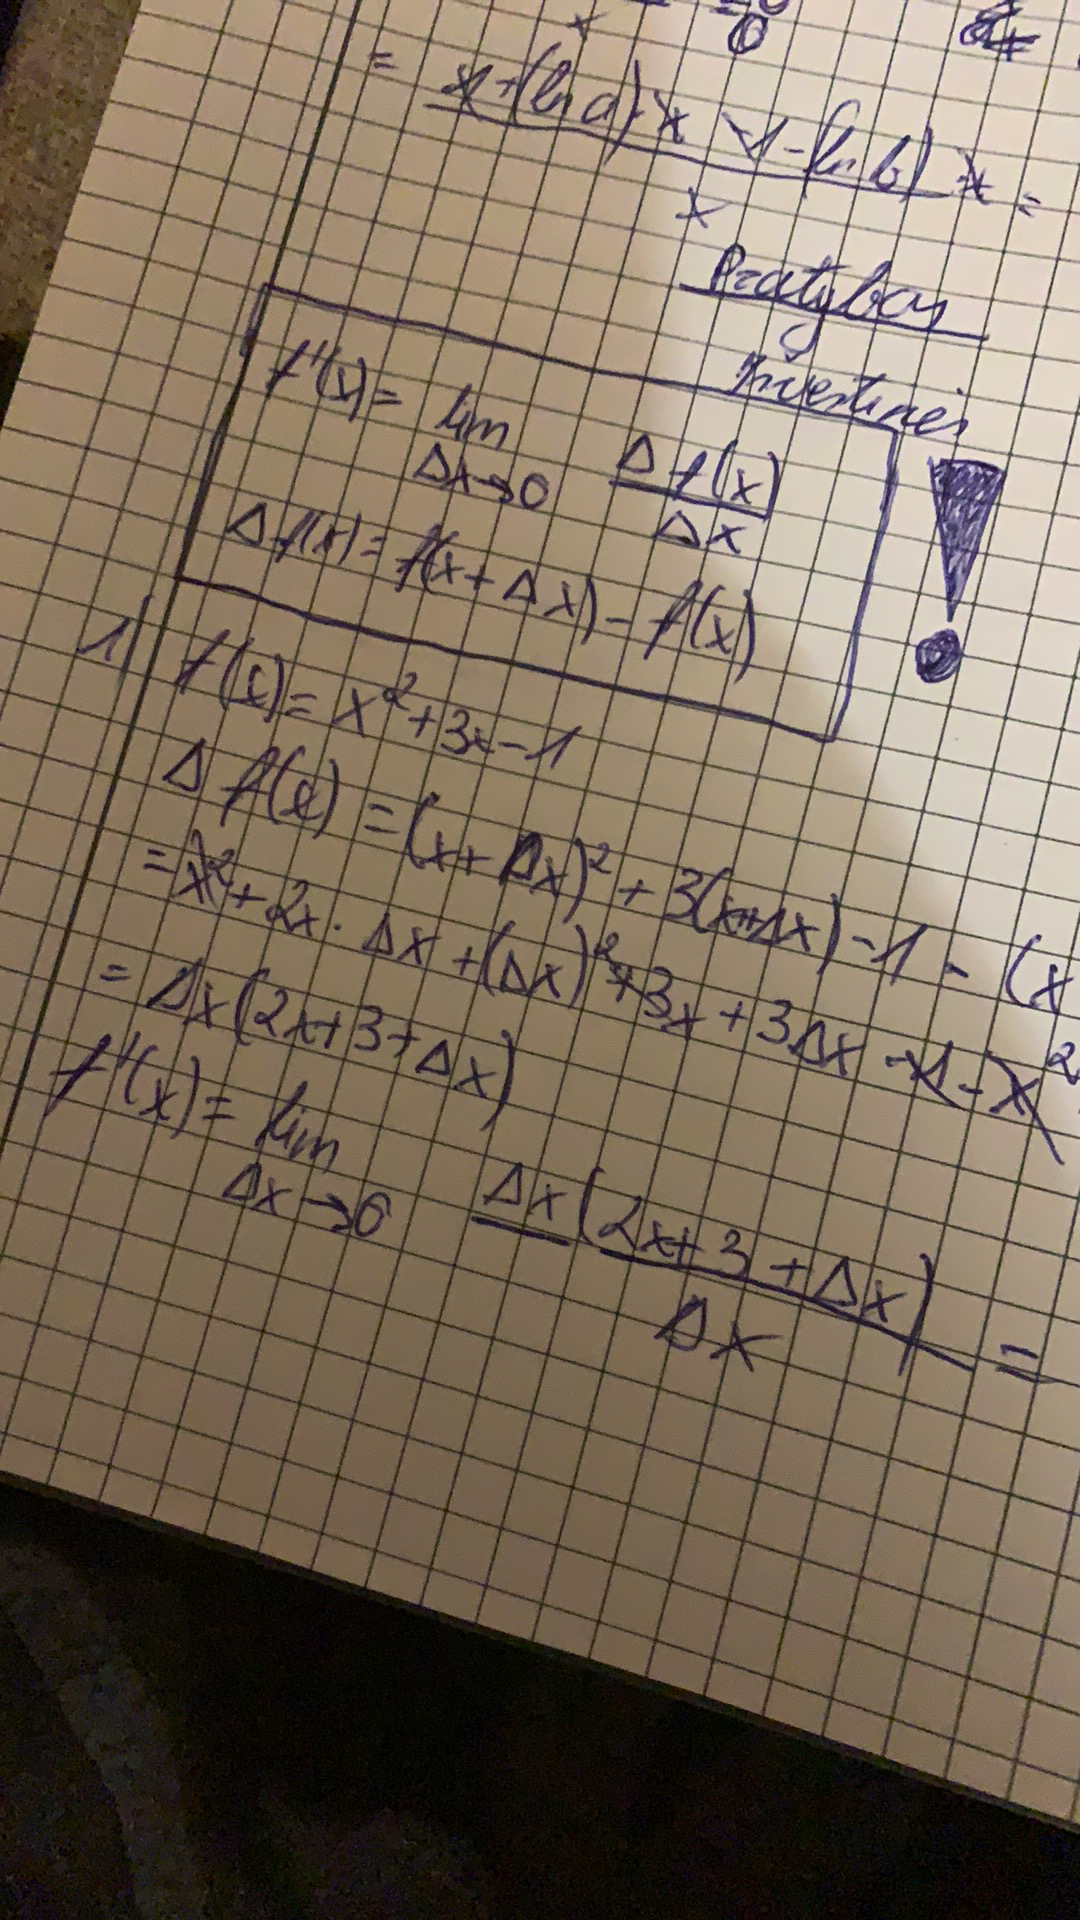 = x+(ln a)·x -1-(ln b)·x =
x
Pratybos
Išvestinės
f'(x) = lim Δf(x)
Δx→0 Δx
Δf(x) = f(x+Δx) - f(x)
1) f(x) = x²+3x-1
Δf(x) = (x+Δx)² + 3(x+Δx) -1 - (x
= x²+2x·Δx+(Δx)²+3x+3Δx-1-x²
= Δx(2x+3+Δx)
f'(x) = lim Δx(2x+3+Δx) =
Δx→0 Δx